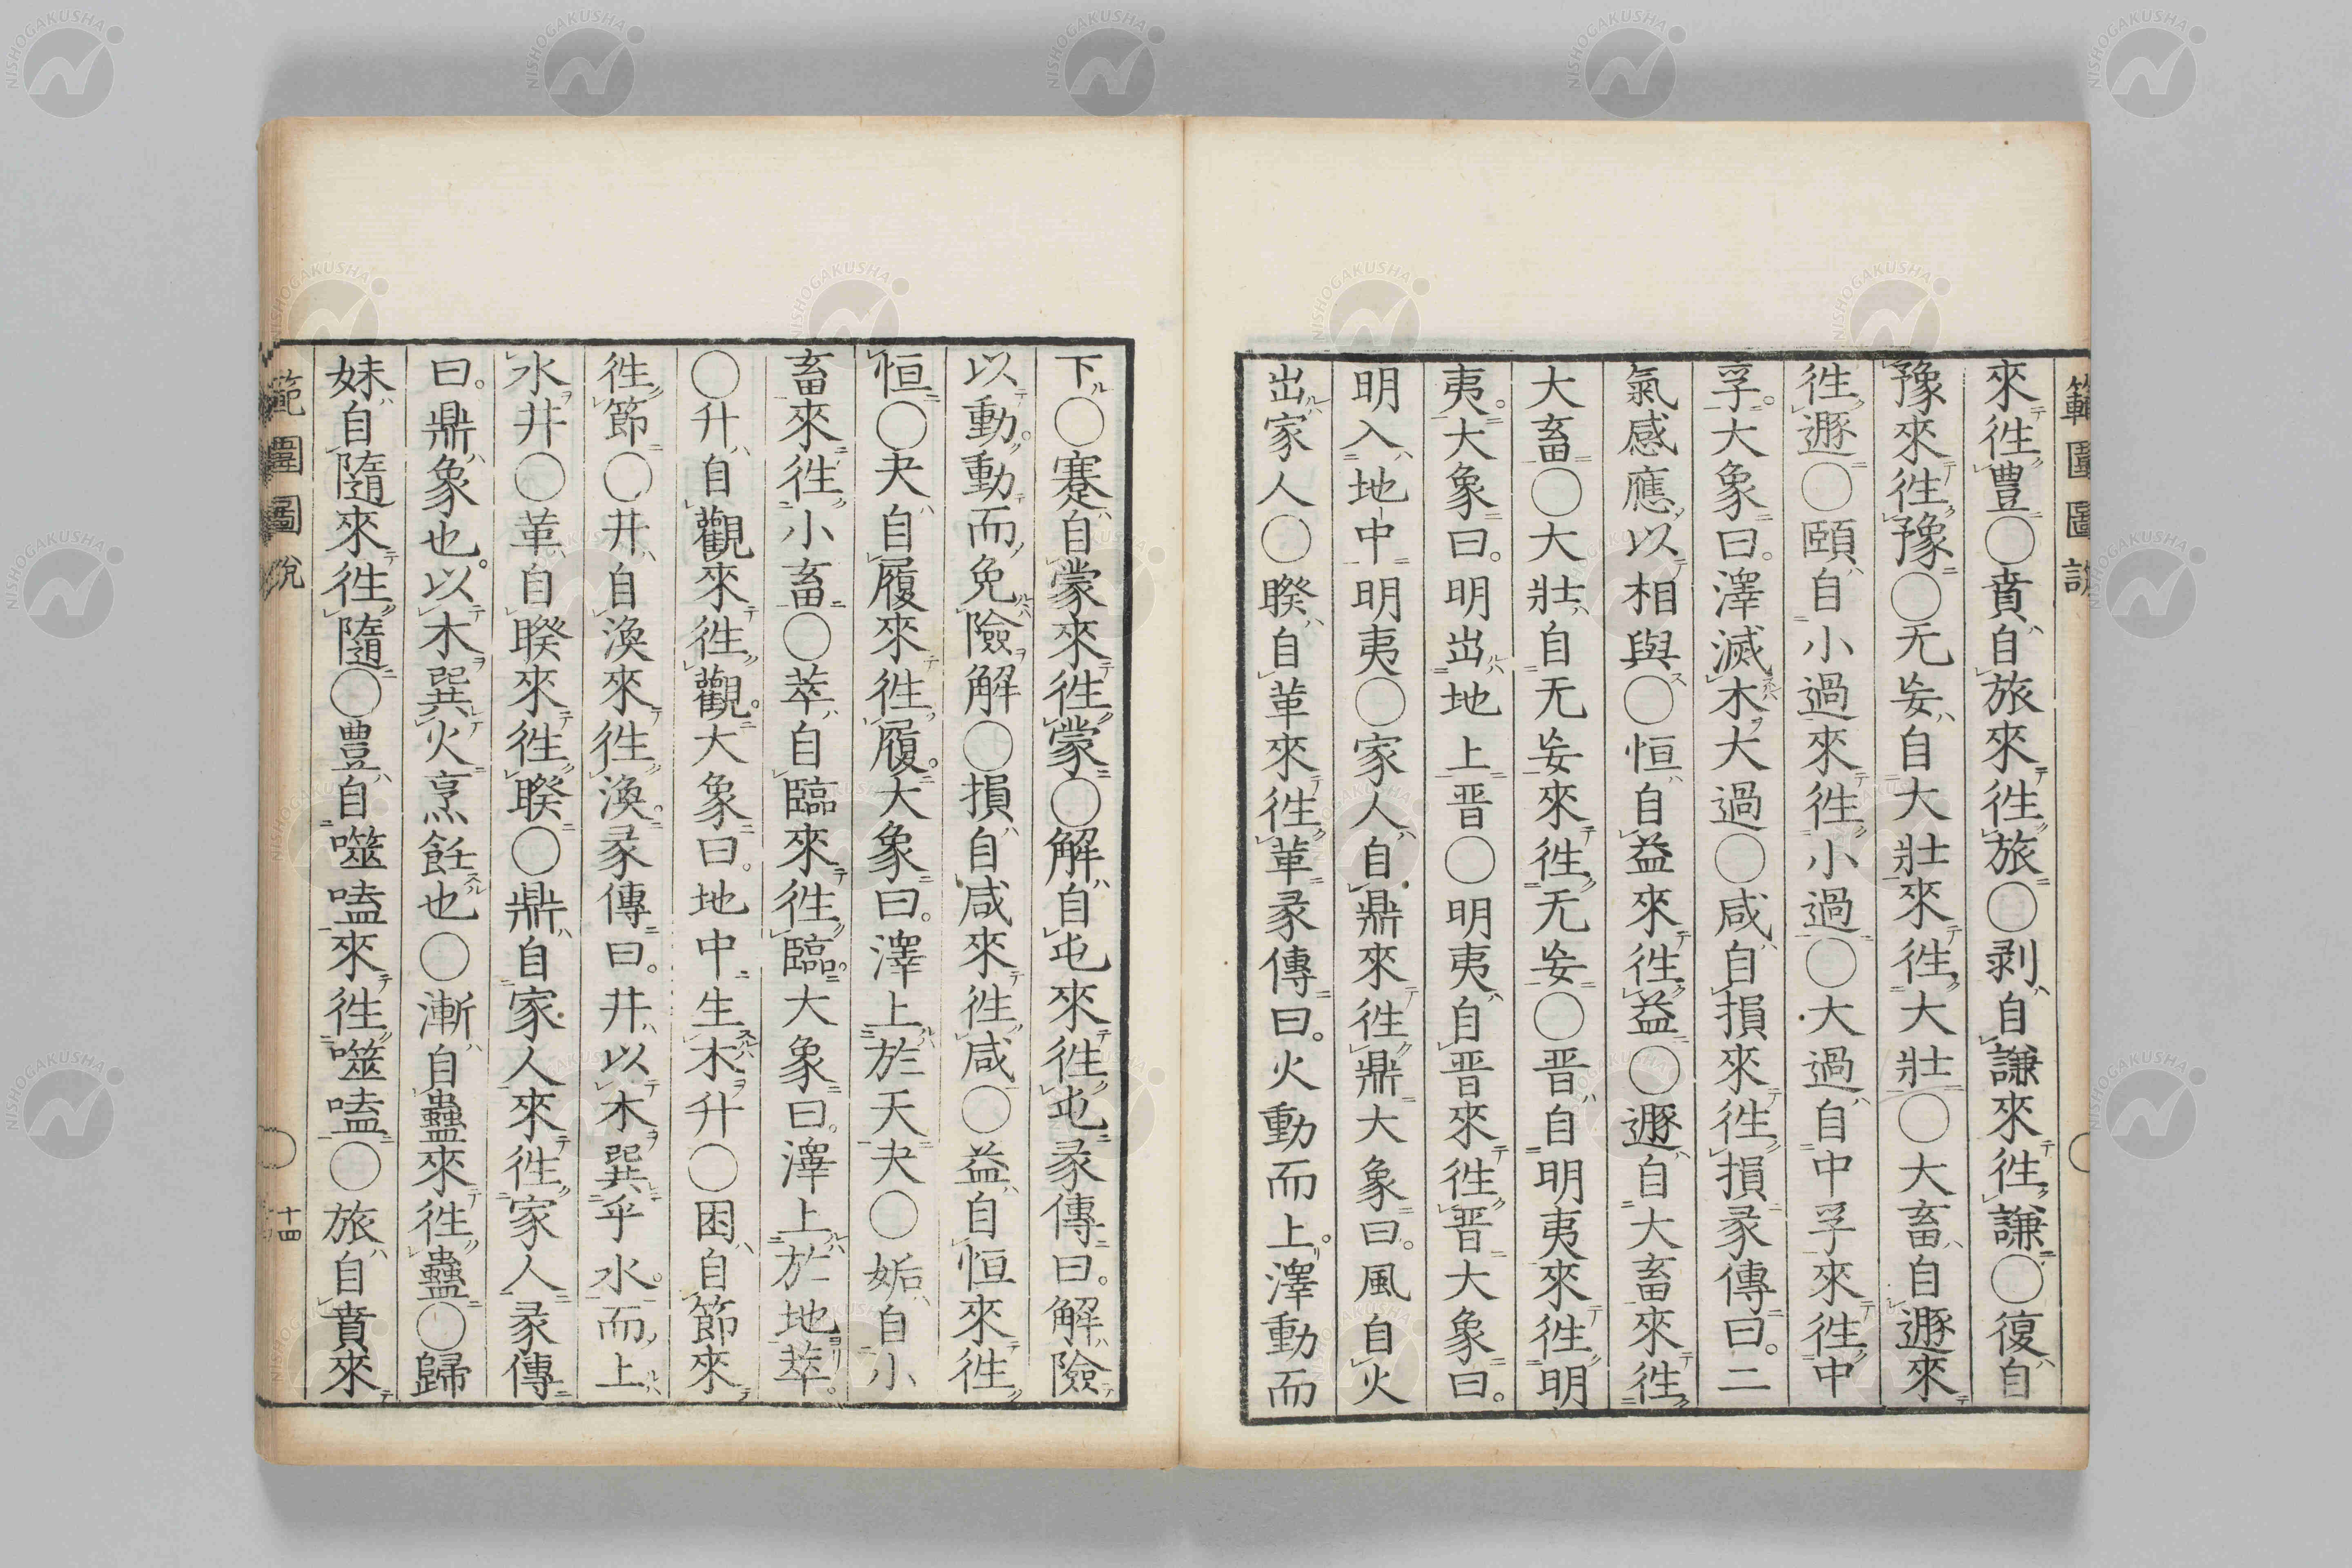 範圍圖說
來徃豊○賁自旅來徃旅○剥自謙來徃謙○復自
豫來徃豫○无妄自大壯來徃大壯○大畜自遯來
徃遯○頤自小過來徃小過○大過自中孚來徃中
孚。大象曰。澤滅木大過○咸自損來徃損彖傳曰。二
氣感應以相與○恒自益來徃益○遯自大畜來徃
大畜○大壯自无妄來徃无妄○晋自明夷來徃明
夷。大象曰。明出地上晋○明夷自晋來徃晋大象曰。
明入地中明夷○家人自鼎來徃鼎大象曰。風自火
出家人○睽自革來徃革彖傳曰。火動而上。澤動而
下○蹇自蒙來徃蒙○解自屯來徃屯彖傳曰。解險
以動。動而免險解○損自咸來徃咸○益自恒來徃
恒○夬自履來徃履。大象曰。澤上於天夬○姤自小
畜來徃小畜○萃自臨來徃臨。大象曰。澤上於地萃。
○升自觀來徃觀。大象曰。地中生木升○困自節來
徃節○井自渙來徃渙。彖傳曰。井以木巽乎水。而上
水井○革自睽來徃睽○鼎自家人來徃家人彖傳
曰。鼎象也。以木巽火烹飪也○漸自蠱來徃蠱○歸
妹自隨來徃隨○豊自噬嗑來徃噬嗑○旅自賁來
範圍圖說 ○ 十四
NISHOGAKUSHA